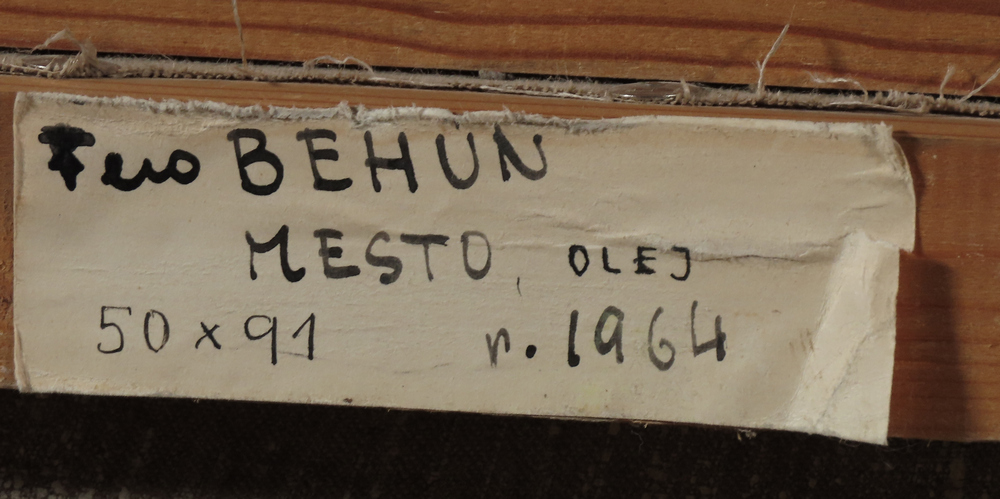 Fero BEHÚN
MESTO, OLEJ
50 x 91 r. 1964